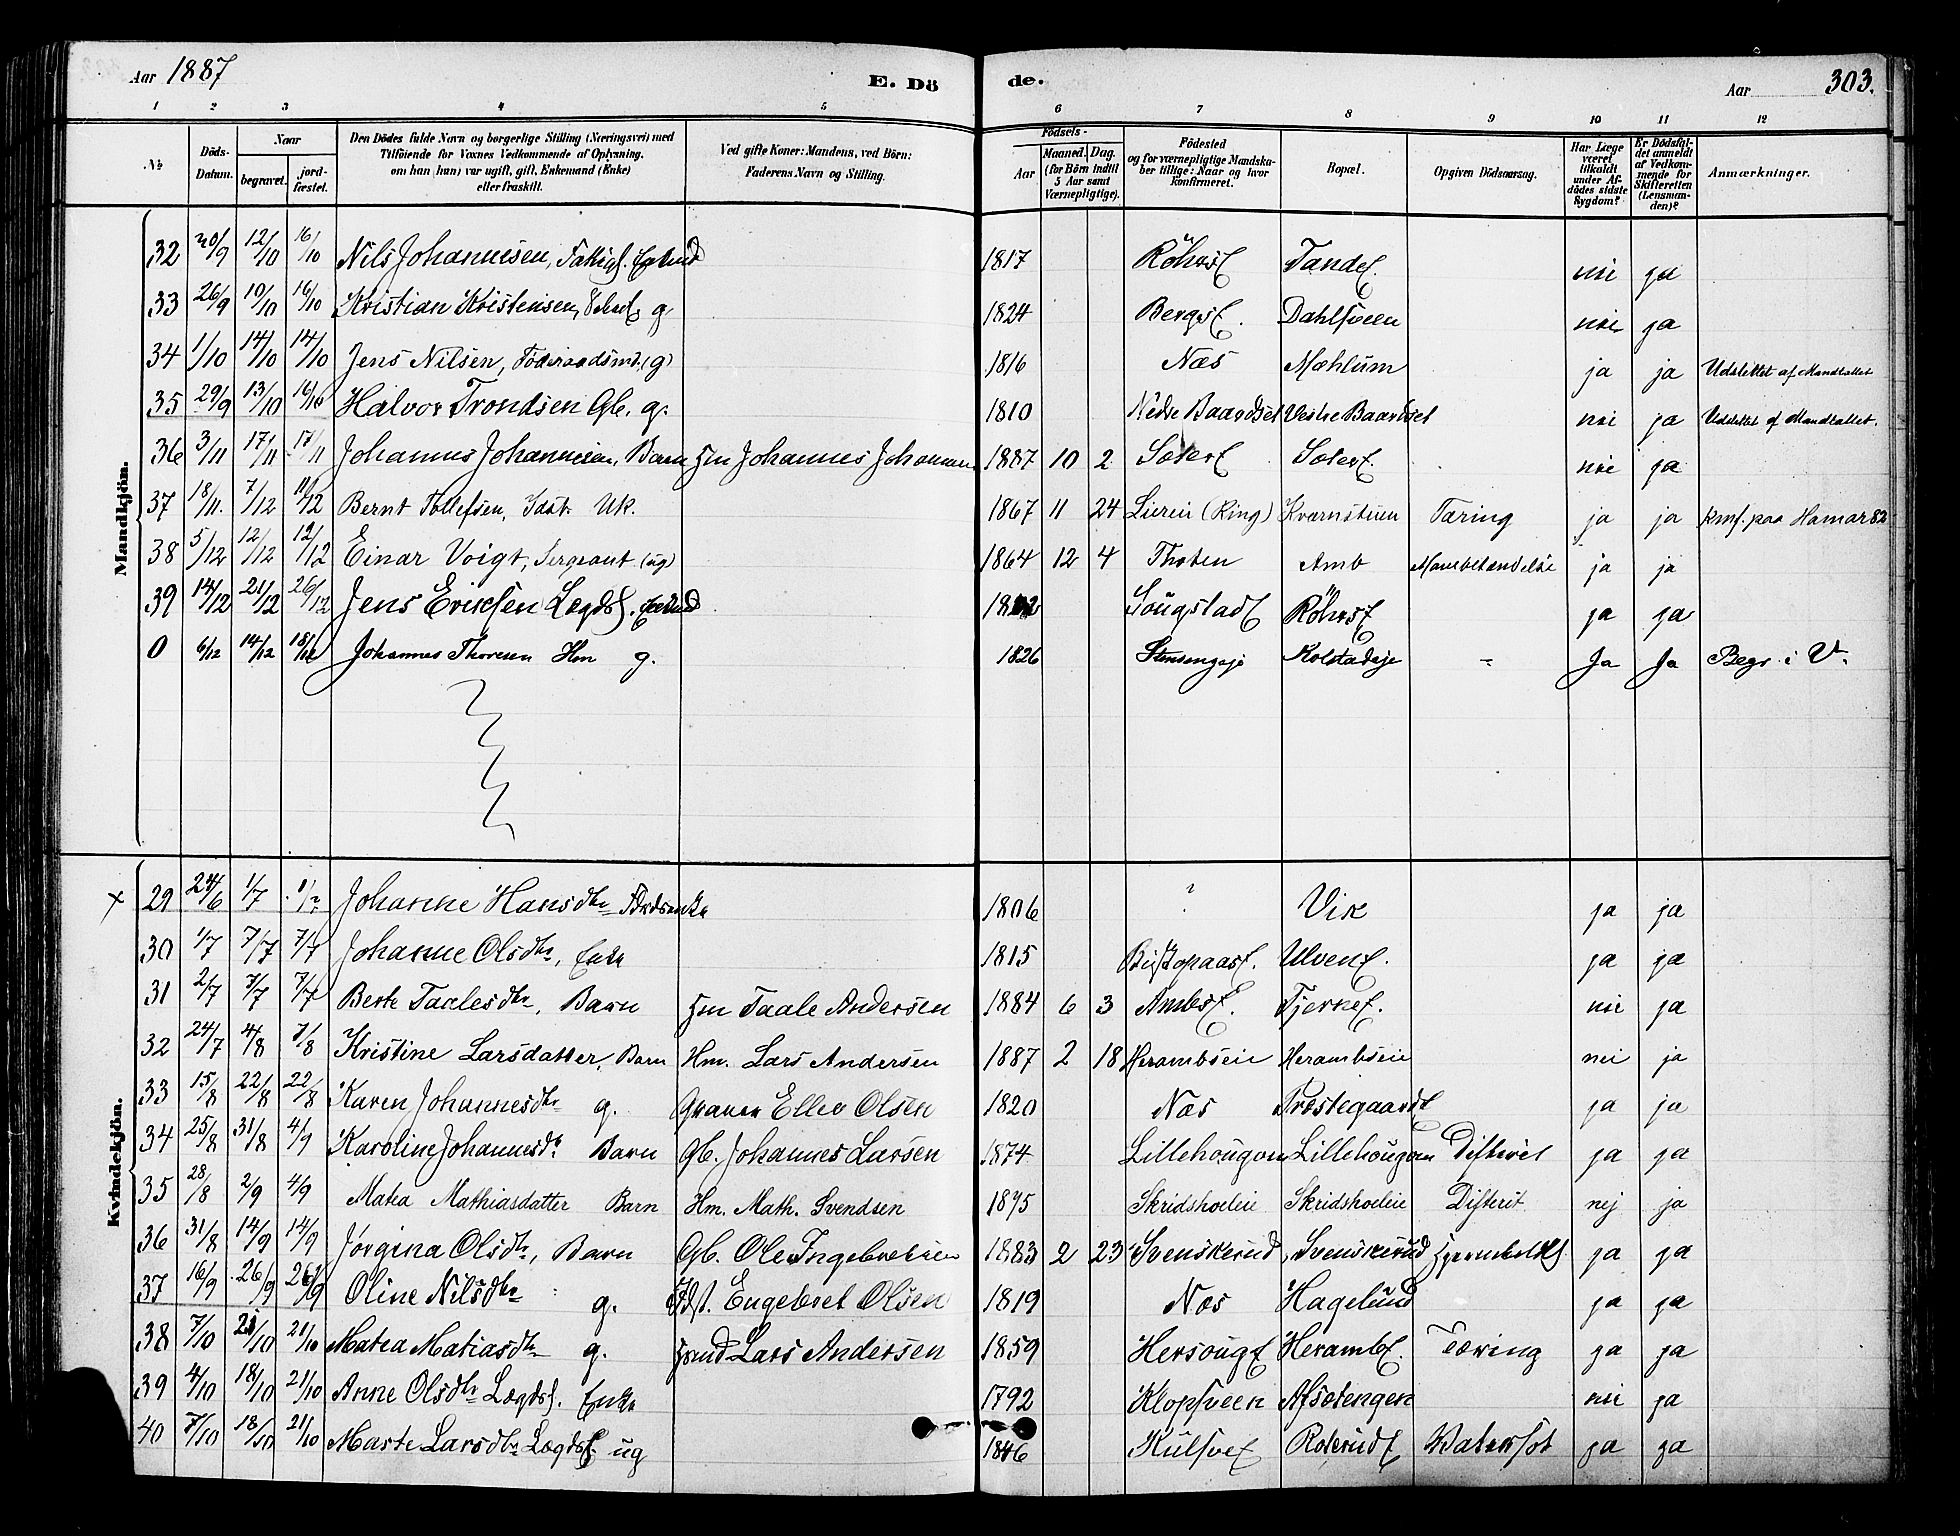 Aar 1887 E. Dö de. Aar 303.
1 2 3 4 5 6 7 8 9 10 11 12
No. Döds-Datum. Naar begravet. jord-fæstet. Den Dödes fulde Navn og borgerlige Stilling (Næringsvei) med Tilföiende for Voxnes Vedkommende af Oplysning, om han (hun) var ugift, gift, Enkemand (Enke) eller fraskilt. Ved gifte Koner: Mandens, ved Börn: Faderens Navn og Stilling. Födsels- Aar Maaned. Dag. (for Börn indtil 5 Aar samt Værnepligtige). Födested og for værnepligtige Mandska-ber tillige: Naar og hvor Konfirmeret. Bopæl. Opgiven Dödsaarsag. Har Læge været tilkaldt under Af-dödes sidste Sygdom? Er Dödsfal-det anmeldt af Vedkom-mende for Skifteretten (Lensman-den)? Anmærkninger.
Mandkjön.
32 20/9 12/10 16/10 Nils Johannesen, 1817 Tande nei ja
33 26/9 10/10 16/10 Kristian Kristensen, g. 1824 Berge Dahlsveen nei ja
34 1/10 14/10 14/10 Jens Nilsen, Föderaadsmd. (g) 1816 Næs Mæhlum ja ja Udslettet af Mandtallet
35 29/9 13/10 16/10 Halvor Trondsen Gb. g. 1810 Nedre Baardset Vestre Baardset nei ja Udslettet af Mandtallet.
36 3/11 17/11 17/11 Johannes Johannesen, Barn Hm Johannes Johannesen 1887 10 2 nei ja
37 18/11. 7/12 11/12 Bernt Tollefsen, Idst. Uk. 1867 11 24 Liereie (Ring) Kvernstuen Tæring ja ja Kmf. paa Hamar 82
38 5/12 12/12 12/12 Einar Voigt, Sergeant (ug) 1864 12 4 Thoten Amb Mavebetændelse ja ja
39 14/12 21/12 26/12 Jens Eriksen Lægds. ja ja
0 6/12 14/12 18/12 Johannes Thoresen Hm g. 1826 Stensengeje Kolstadeje - Ja Ja Begr. i V.
Kvindekjön.
x 29 24/6 1/7 Johanne Hansdtr 1806 ? Vik ja ja
30 1/7 7/7 7/7 Johanne Olsdtr, Enke 1815 Ulven ja ja
31 2/7 7/7 7/7 Berte Taalesdtr, Barn Hm Taale Andersen 1884 6 3 Ambs Tjerne nei ja
32 24/7 4/8 7/8 Kristine Larsdatter, Barn Hm. Lars Andersen 1887 2 18 Herambseie Herambseie nei ja
33 15/8 22/8 22/8 Karen Johannesdtr g. Graver Ellev Olsen 1820 Næs Prestegaards ja ja
34 25/8 31/8 4/9 Karoline Johannesdtr Barn Gb. Johannes Larsen 1874 Lillehougom Lillehougom Difterit ja ja
35 28/8 2/9 4/9 Matea Mathiasdatter Barn Hm. Math. Svendsen 1875 Skridsholeie Skridsholeie Difterit nej ja
36 31/8 14/9 14/9 Jørgina Olsdtr, Barn Gb. Ole Ingebretsen 1883 2 23 Svenskerud Svenskerud ja ja
37 16/9 26/9 26/9 Oline Nilsdtr g. Fdst. Engebret Olsen 1819 Næs Hagelund ja ja
38 7/10 21/10 21/10 Matea Matiasdtr g. Hmd Lars Andersen 1859 Hersoug Heramb Tæring ja ja
39 4/10 18/10 21/10 Anne Olsdtr Lægds. Enke 1792 Klopsveen Afsetengen nei ja
40 7/10 18/10 21/10 Marte Larsdtr Lægds ug 1846 Hulsve Roterud Watersot ja ja